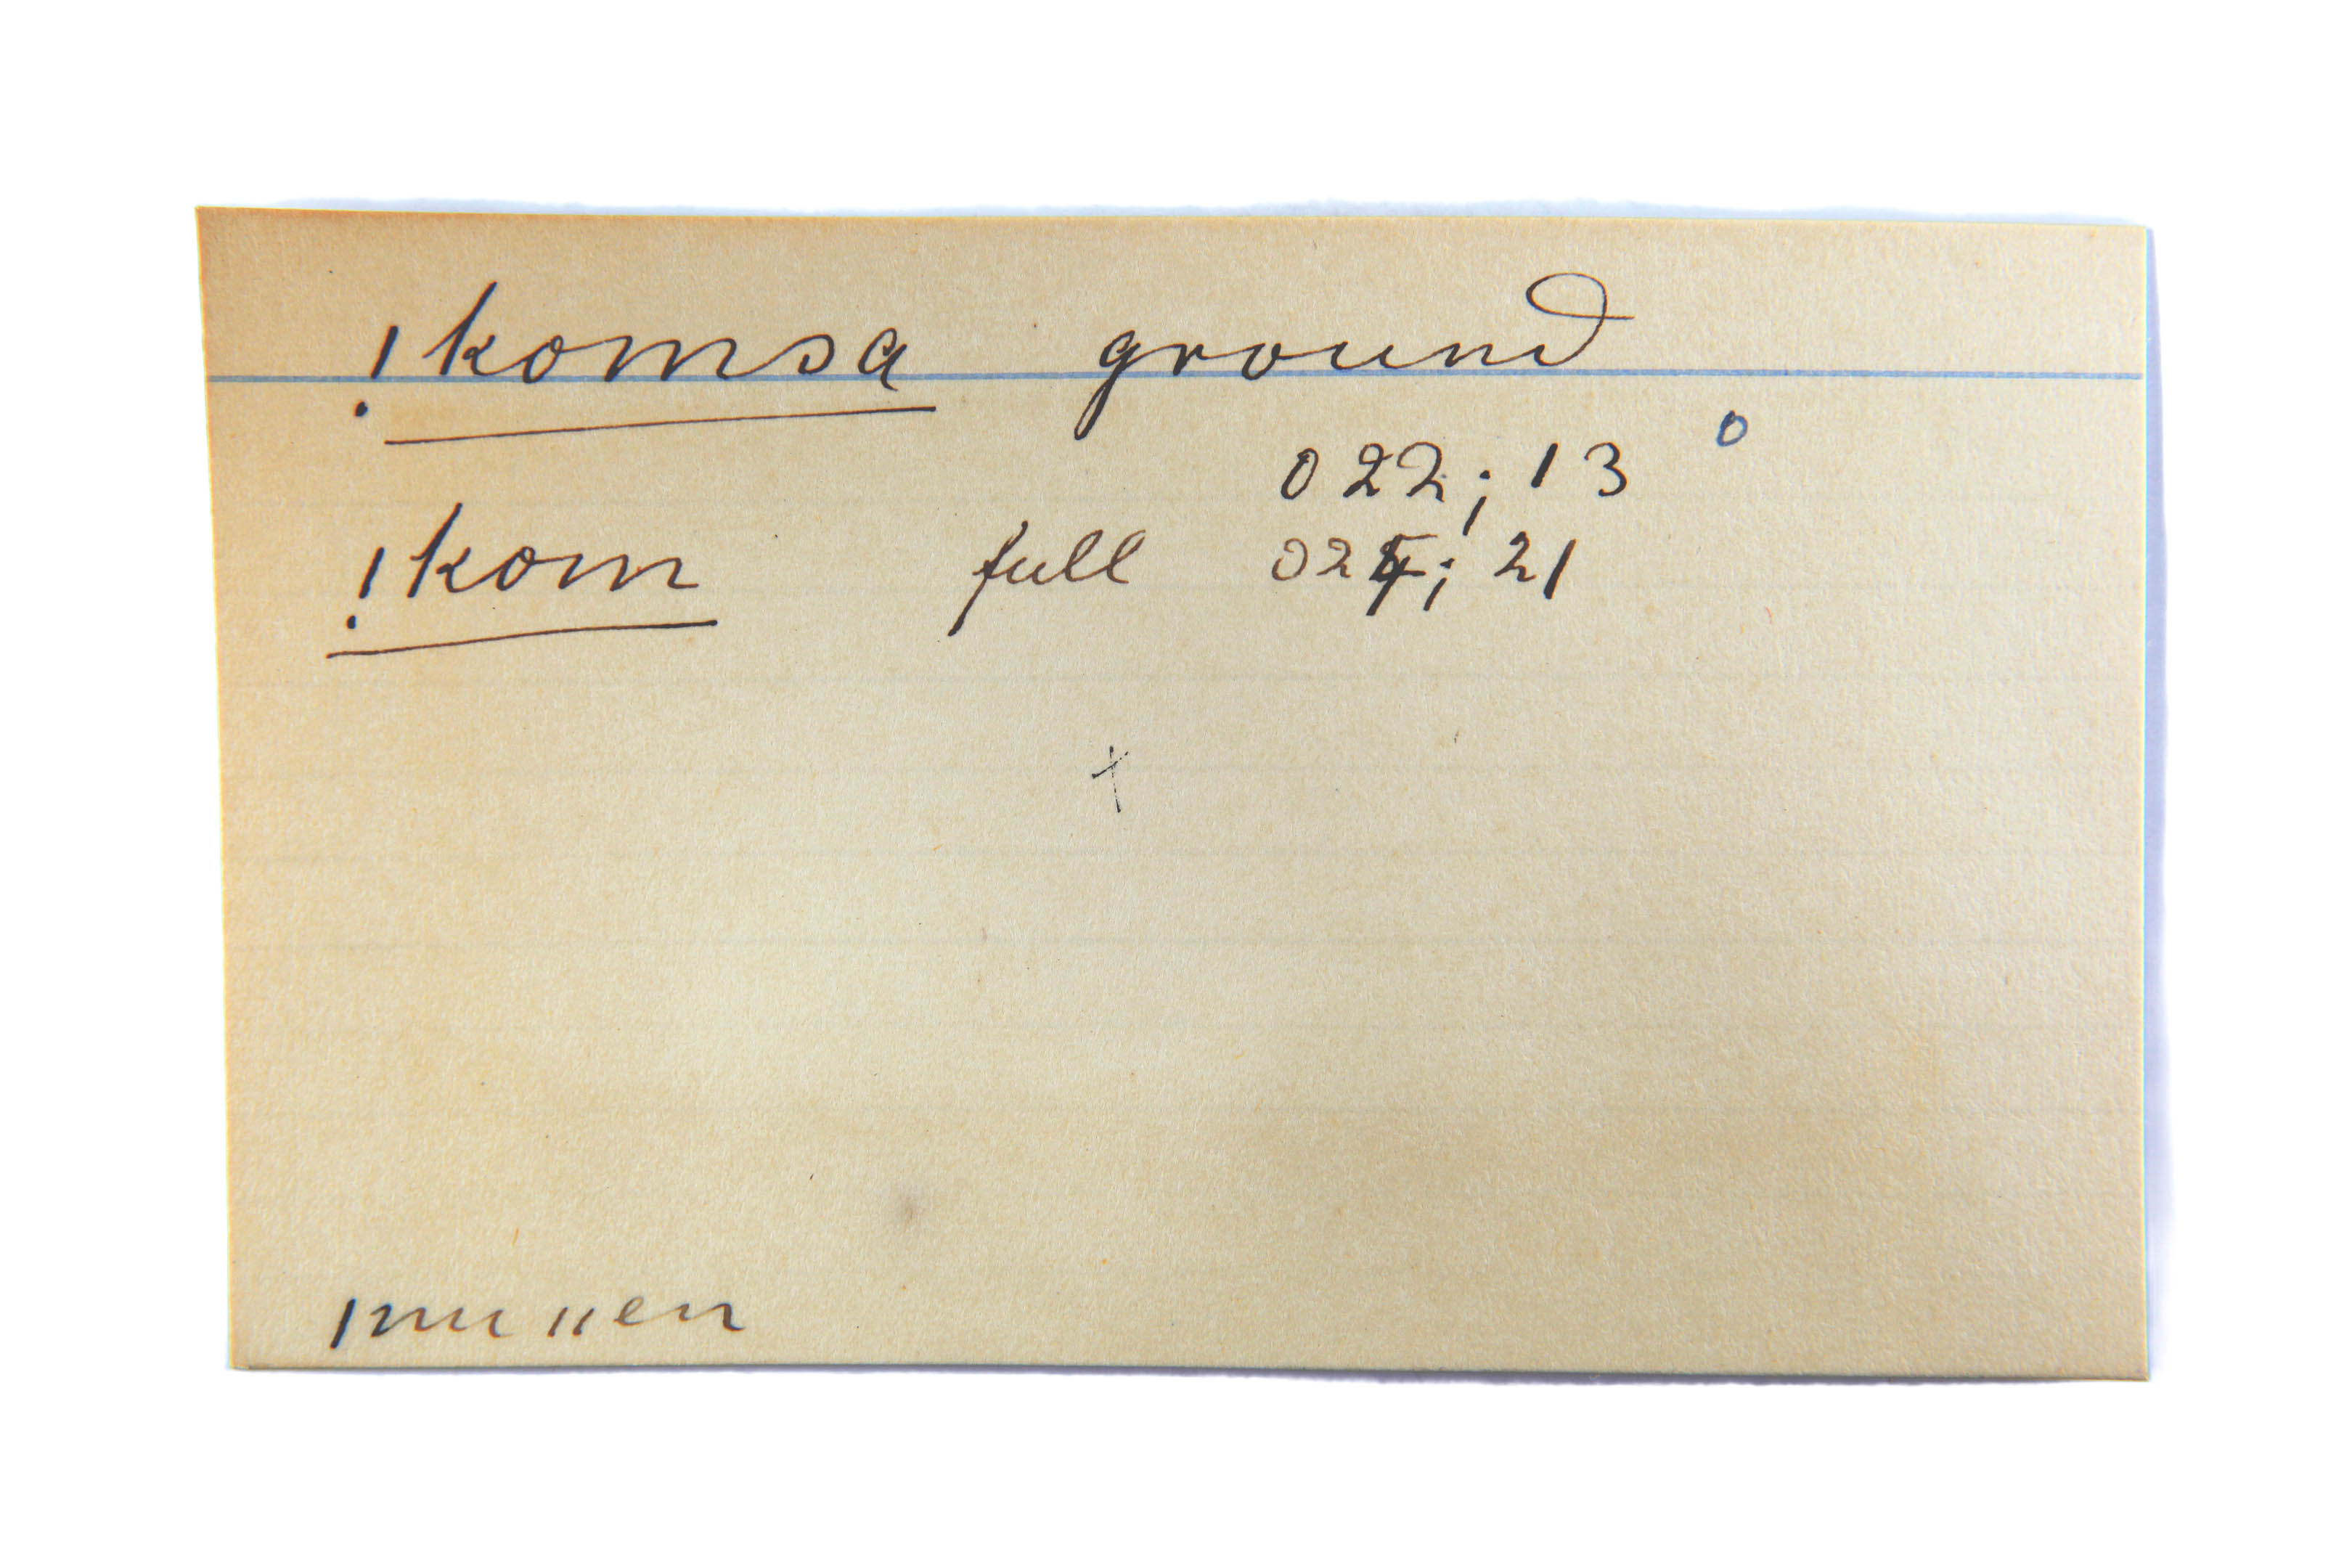 !komsa ground
022; 13 o
!kom full 024; 21
x
|nu ||en